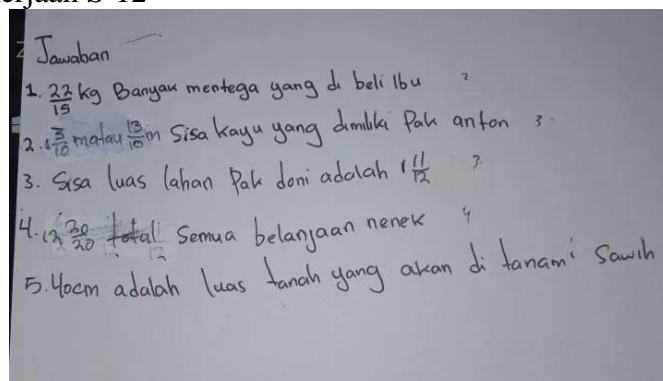 Jawaban
1. 22/15 kg Banyak mentega yang di beli Ibu 2
2. 1 3/10 m atau 13/10 m Sisa kayu yang dimiliki Pak anton 3.
3. Sisa luas lahan Pak doni adalah 1 11/12 3.
4. 12 20/20 total Semua belanjaan nenek 4
5. 40cm adalah luas tanah yang akan di tanami Sawih